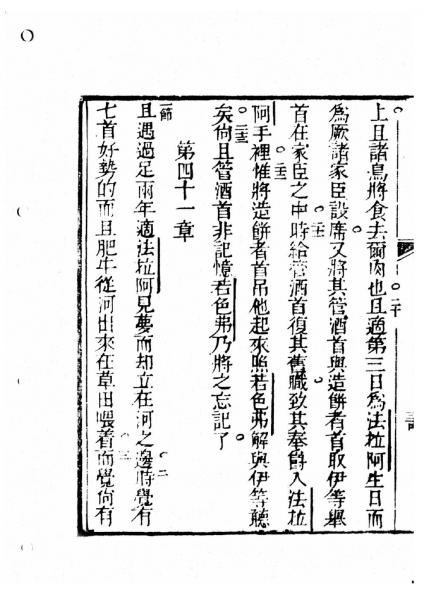 上且諸鳥將食去爾肉也且適第三日爲法拉阿生日而
爲厥諸家臣設席又將其管酒首與造餅者首取伊等舉
首在家臣之中時給管酒首復其舊職致其奉爵入法拉
阿手裡惟將造餅者首吊他起來照若色弗解與伊等聽
矣尙且管酒首非記憶若色弗乃將之忘記了
第四十一章
一節
且遇過足兩年適法拉阿見夢而却立在河之邊時覺有
七首好勢的而且肥牛從河出來在草田喂着而覺尙有